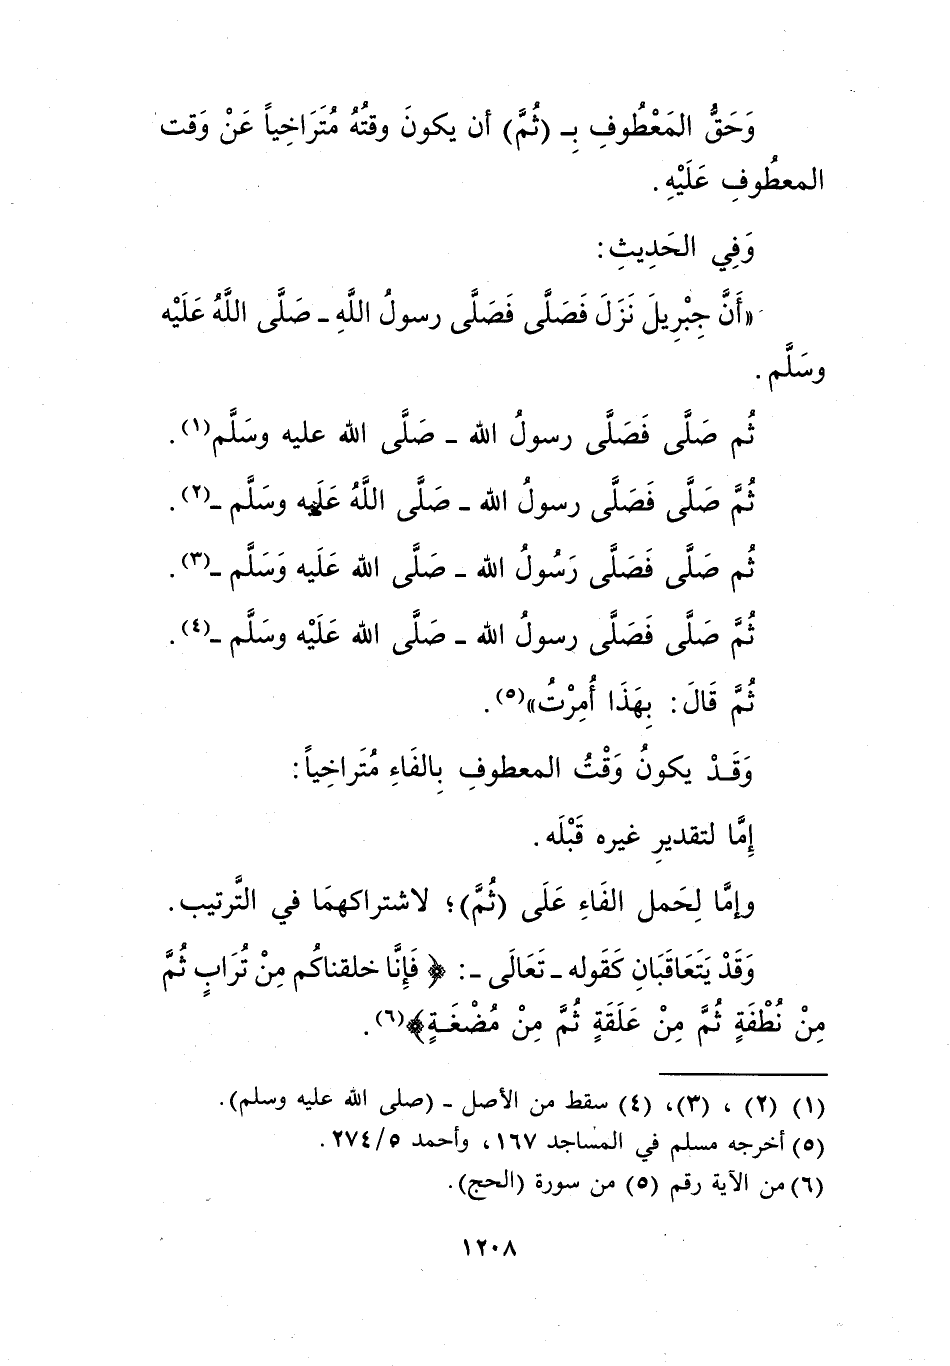 وَحَقُّ المَعْطُوفِ بِـ (ثُمَّ) أن يكونَ وقتُهُ مُتَرَاخِياً عَنْ وَقت
المعطُوفِ عَلَيْهِ.
وَفِي الحَدِيثِ:
«أَنَّ جِبْرِيلَ نَزَلَ فَصَلَّى فَصَلَّى رسولُ اللَّهِ ـ صَلَّى اللَّهُ عَلَيْه
وسَلَّم.
ثُم صَلَّى فَصَلَّى رسولُ الله ـ صَلَّى الله عليه وسَلَّم(١).
ثُمَّ صَلَّى فَصَلَّى رسولُ الله ـ صَلَّى اللَّهُ عَلَيه وسَلَّم ـ(٢).
ثُم صَلَّى فَصَلَّى رَسُولُ الله ـ صَلَّى الله عَلَيه وَسَلَّم ـ(٣).
ثُمَّ صَلَّى فَصَلَّى رسولُ الله ـ صَلَّى الله عَلَيْه وسَلَّم ـ(٤).
ثُمَّ قَالَ: بِهَذَا أُمِرْتُ»(٥).
وَقَـدْ يكونُ وَقْتُ المعطوفِ بِالفَاءِ مُتَراخِياً:
إِمَّا لتقديرِ غيره قَبْلَه.
وإمَّا لِحَمل الفَاءِ عَلَى (ثُمَّ)؛ لاشتراكهمَا في التَّرتيب.
وَقَدْ يَتَعَاقَبَانِ كَقَوله ـ تَعَالَى ـ: ﴿فَإِنَّا خلقناكُم مِنْ تُرَابٍ ثُمَّ
مِنْ نُطْفَةٍ ثُمَّ مِنْ عَلَقَةٍ ثُمَّ مِنْ مُضْغَـةٍ﴾(٦).
(١) (٢) ، (٣)، (٤) سقط من الأصل ـ (صلى الله عليه وسلم).
(٥) أخرجه مسلم في المساجد ١٦٧، وأحمد ٢٧٤/٥.
(٦) من الآية رقم (٥) من سورة (الحج).
١٢٠٨